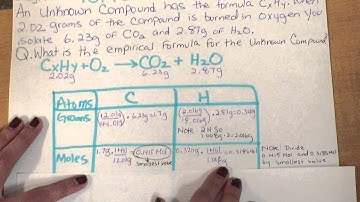 An Unknown Compound has the formula CxHy. When
2.02 grams of the compound is burned in oxygen you
isolate 6.23g of CO2 and 2.87g of H2O.
Q. What is the empirical formula for the Unknown Compound
CxHy + O2 → CO2 + H2O
2.02g 6.23g 2.87g
Atoms C H
Grams 12.01g 6.23g = 1.7g 2.016g 2.87g = 0.320g
44.01g 18.016g
Note 2H so
1.008g × 2 = 2.016g
Moles 1.7g 1mol 0.320g 1mol
12.01g smallest value 1.008g
Note: Divide
by smallest value